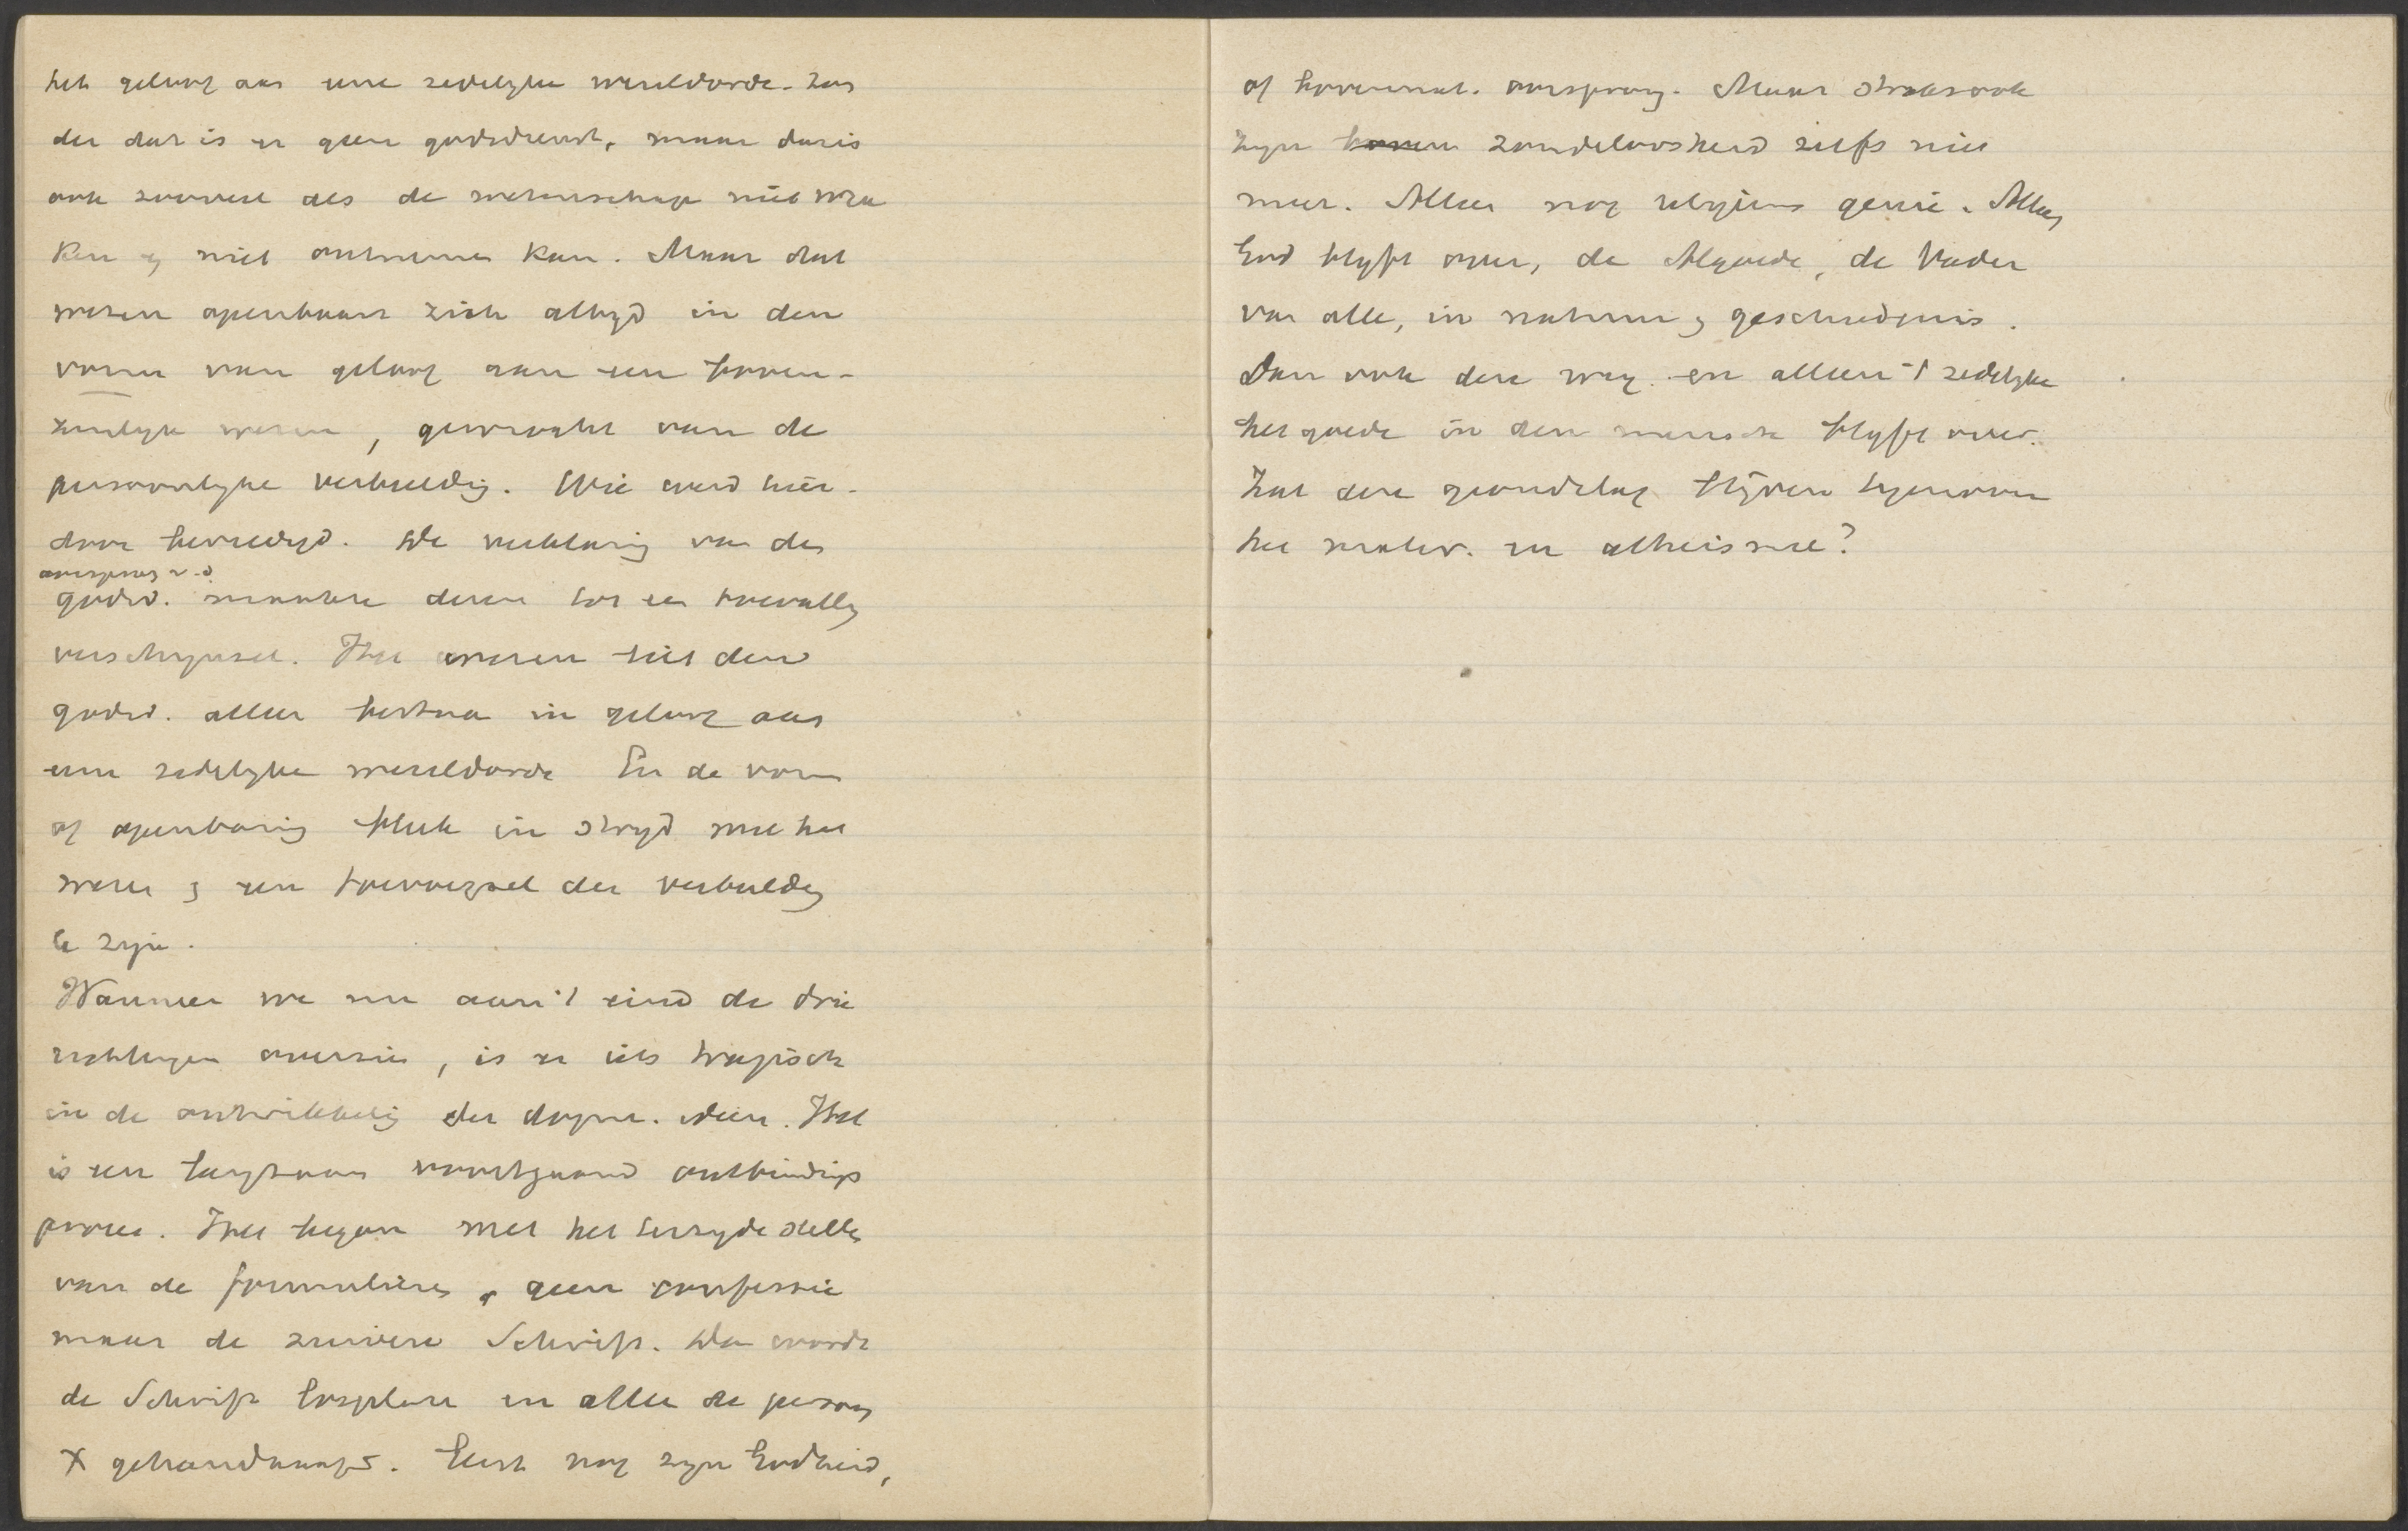 het geloof aan eene zedelyke wereldorde. Zon
der dat is er geen godsdienst, maar dat is
ook zooveel als de wetenschap niet wra
ken en niet ontnemen kan. Maar dat
wezen openbaart zich altyd in den
vorm van geloof aan een boven-
zinlyk wezen, gewrocht van de
persoonlyke verbeelding. Wie werd hier-
door bevredigd. De verklaring van den
oorsprong v. d.
godsd. maakte dezen tot een toevallig
verschynsel. Het wezen liet den
godsd. alleen bestaan in geloof aan
eene zedelyke wereldorde En de vorm
of openbaring bleek in stryd met het
wezen en een toevoegsel der verbeelding
te zyn.
Wanneer we nu aan 't eind de drie
richtingen overzien, is er iets tragisch
in de ontwikkeling der dogm. ideen. Het
is een langzaam voortgaand ontbindings
proces. Het begon met het terzyde stellen
van de formulieren, geen confessie
maar de zuivere Schrift. Dan wordt
de Schrift losgelaten en alleen de persoon
X gehandhaafd. Eerst nog zyn Godheid,
of bovennat. oorsprong. Maar straks ook
zyn zondeloosheid zelfs niet
meer. Alleen nog religieus genie. Alleen
God blyft over, de Algoede, de Vader
van alle, in natuur en geschiedenis.
Dan ook deze weg. en alleen 't zedelyke
het goede in den mensch blyft over.
Zal deze grondslag blijven tegenover
het mater. en atheisme?